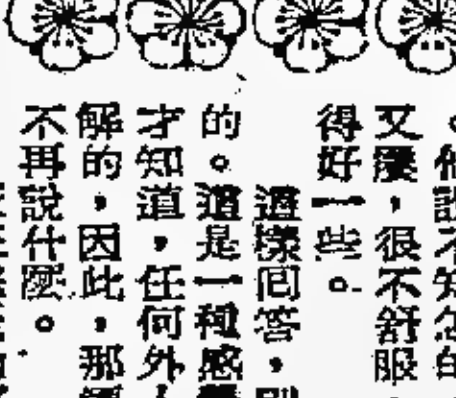 他說不知怎的
又廋，很不舒服，
得好一些。
這樣回答，別
的。這是一種感
才知道，任何外人
解的，因此，那
不再說什麼。